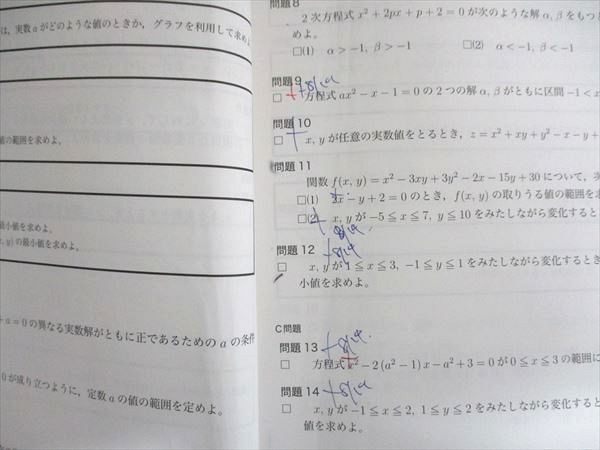 は，実数 a がどのような値のときか，グラフを利用して求めよ
値の範囲を求めよ．
最小値を求めよ．
x, y) の最小値を求めよ．
+a=0 の異なる実数解がともに正であるための a の条件
0 が成り立つように，定数 a の値の範囲を定めよ．
問題8
2 次方程式 x²+2px+p+2=0 が次のような解 α, β をもつと
めよ．
□(1) α>-1, β>-1 □(2) α<-1, β<-1
問題9
8/19
□ 方程式 ax²-x-1=0 の 2 つの解 α, β がともに区間 -1<x
問題10
□ x, y が任意の実数値をとるとき，z=x²+xy+y²-x-y+
問題11
関数 f(x, y)=x²-3xy+3y²-2x-15y+30 について，次
□(1) 2x-y+2=0 のとき，f(x, y) の取りうる値の範囲を求
□(2) x, y が -5≦x≦7, y≦10 をみたしながら変化すると
8/19
問題12 8/19
□ x, y が 1≦x≦3, -1≦y≦1 をみたしながら変化するとき
小値を求めよ．
C問題
問題13 8/19
□ 方程式 x²-2(a²-1)x-a²+3=0 が 0≦x≦3 の範囲に
問題14 8/19
□ x, y が -1≦x≦2, 1≦y≦2 をみたしながら変化すると
値を求めよ．